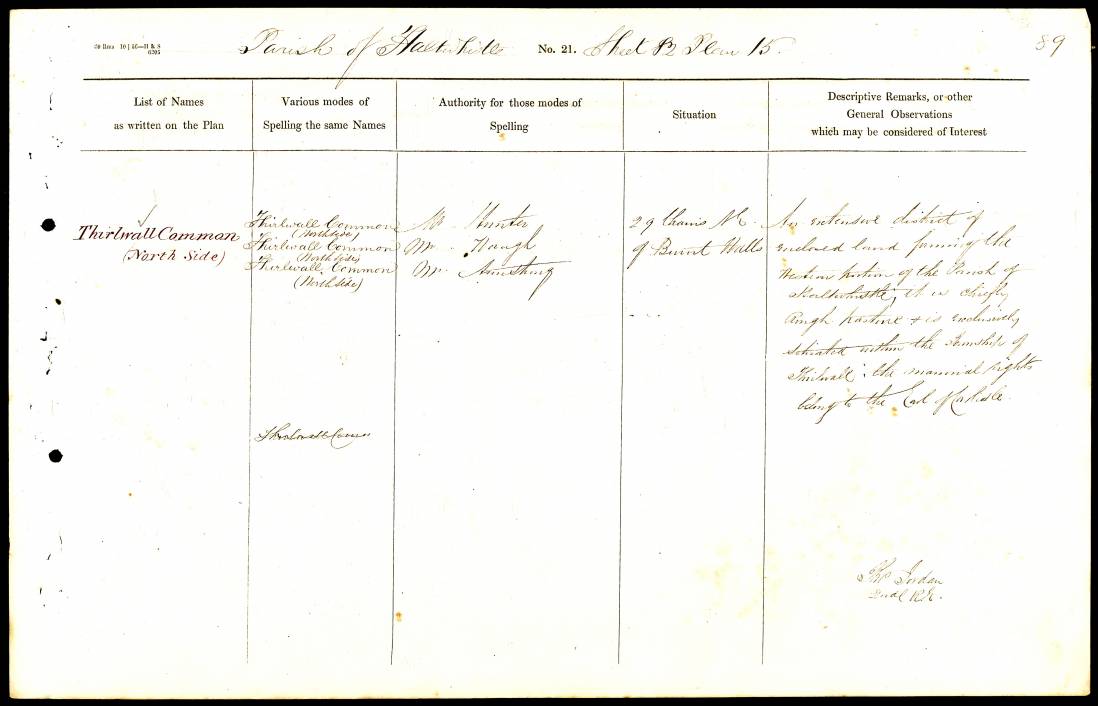 Parish of Haltwhistle No. 21. Sheet 82 Plan 15. 89
List of Names
as written on the Plan
Various modes of
Spelling the same Names
Authority for those modes of
Spelling
Situation
Descriptive Remarks, or other
General Observations
which may be considered of Interest
Thirlwall Common
(North Side)
Thirlwall Common
(North Side)
Thirlwall Common
(North Side)
Thirlwall Common
(North Side)
Thirlwall Common
Mr. Hunter
Mr. Haugh
Mr. Armstrong
29 Chains N.E.
of Burnt Walls
An extensive district of
enclosed land forming the
Western portion of the Parish of
Haltwhistle, it is chiefly
Rough pasture & is exclusively
situated within the Township of
Thirlwall; the manorial rights
belong to the Earl of Carlisle.
Thos Jordan
R.E.